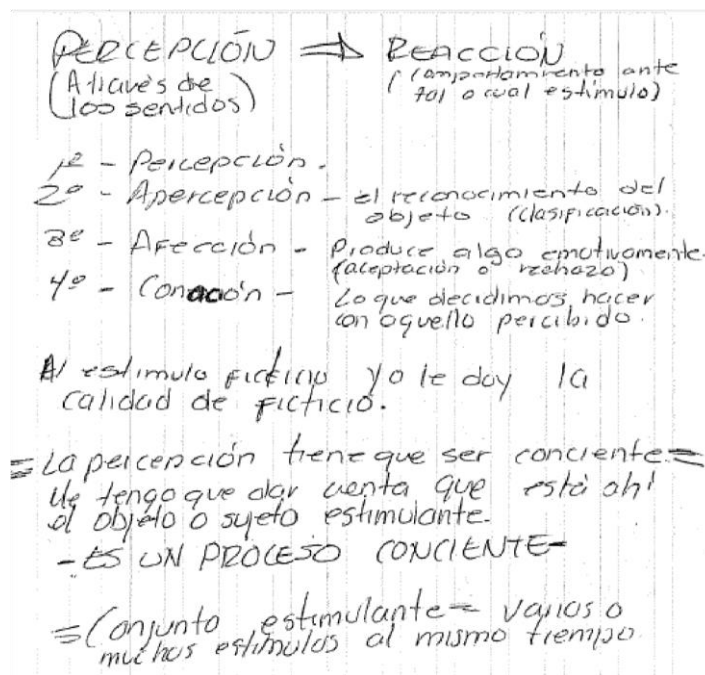 PERCEPCIÓN ⇒ REACCIÓN
(A través de los sentidos) (Comportamiento ante tal o cual estímulo)
1º - Percepción.
2º - Apercepción - el reconocimiento del
objeto (clasificación).
3º - Afección - Produce algo emotivamente.
(aceptación o rechazo)
4º - Conación - Lo que decidimos hacer
con aquello percibido.
Al estímulo ficticio yo le doy la
calidad de ficticio.
= La percepción tiene que ser conciente =
Me tengo que dar cuenta que está ahí
el objeto o sujeto estimulante.
- ES UN PROCESO CONCIENTE -
= Conjunto estimulante = varios o
muchos estímulos al mismo tiempo.